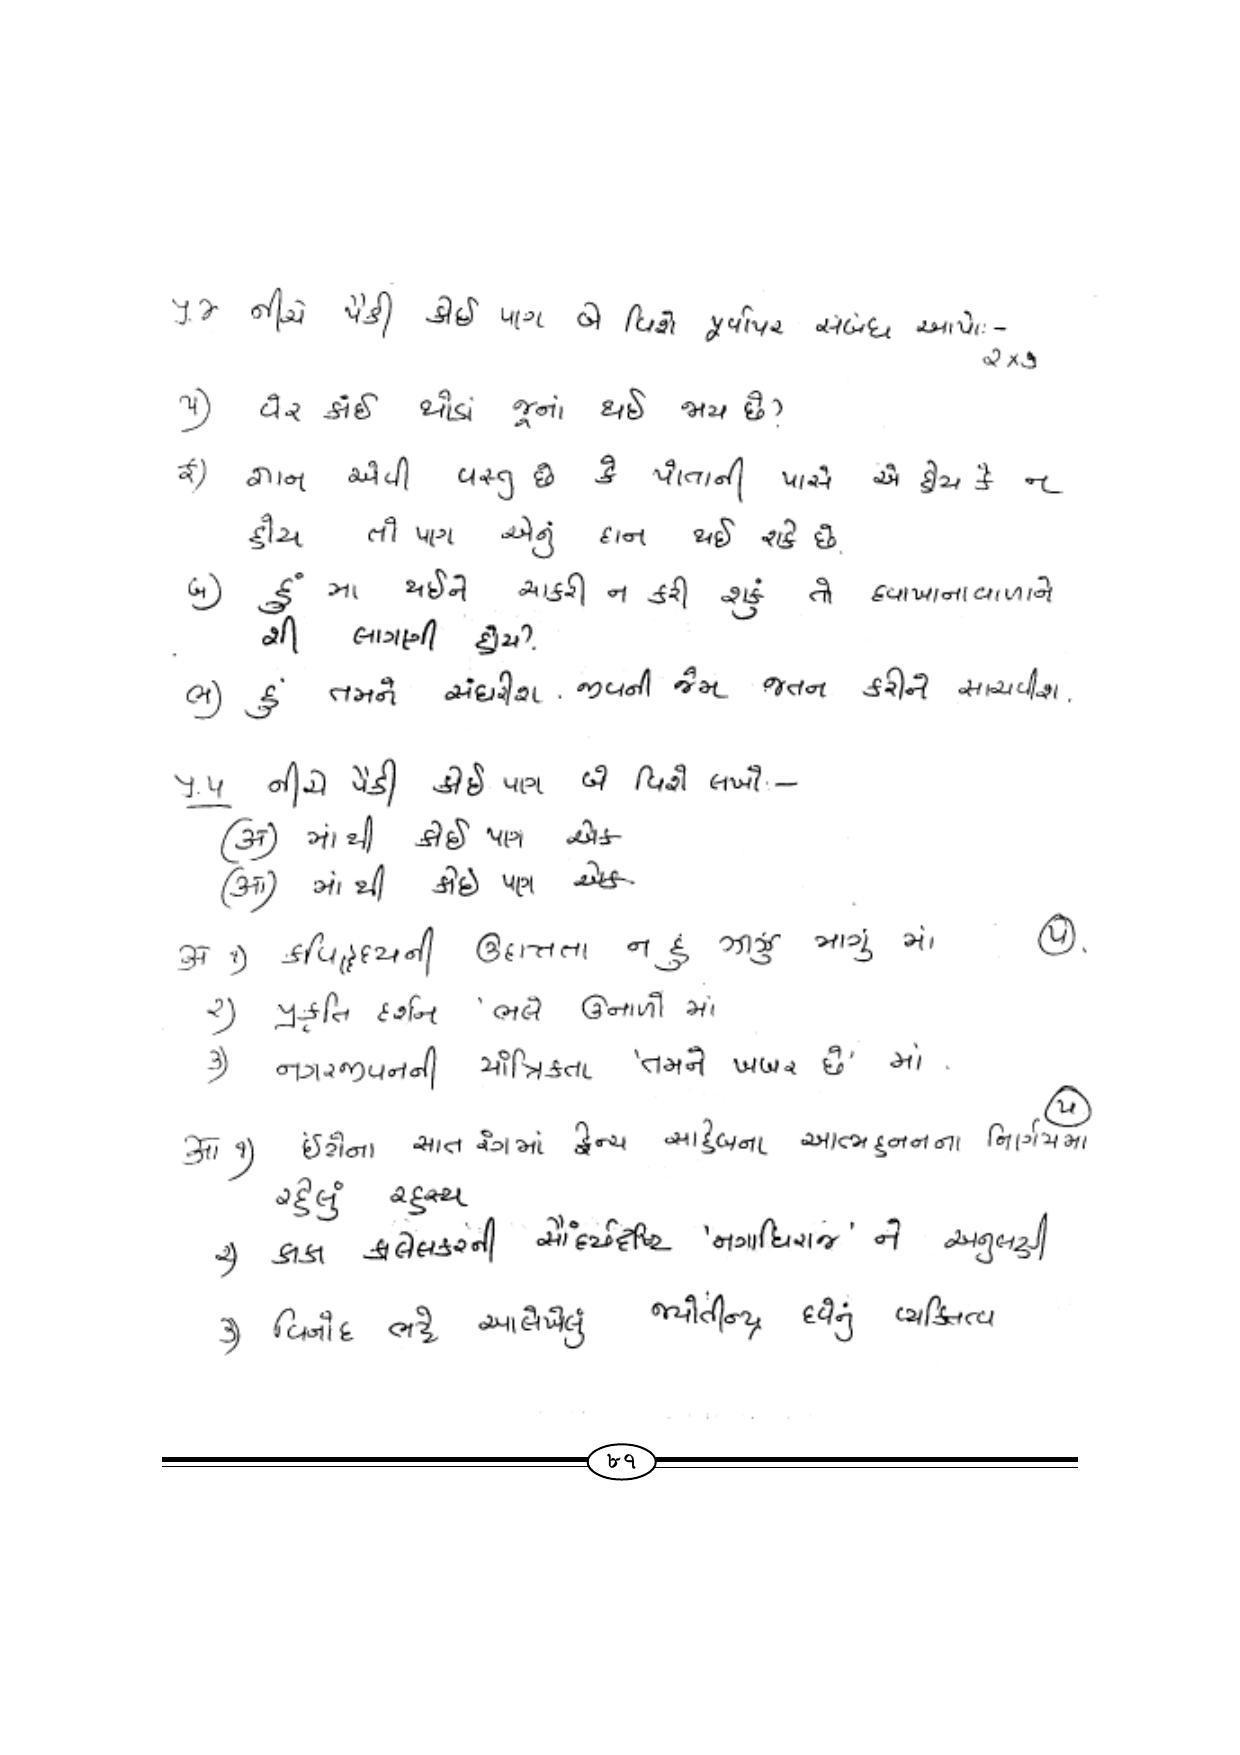 પ્ર.૪ નીચે પૈકી કોઈ પણ બે વિશે પૂર્વાપર સંબંધ આપોઃ-
૨ x ૭
પ) વેર કાંઈ થોડાં જૂનાં થઈ જાય છે?
ફ) જ્ઞાન એવી વસ્તુ છે કે પોતાની પાસે એ હોય કે ન
હોય તો પણ એનું દાન થઈ શકે છે.
બ) હું મા થઈને ચાકરી ન કરી શકું તો દવાખાનાવાળાને
શી લાગણી હોય?
ભ) હું તમને સંઘરીશ. જીવની જેમ જતન કરીને સાચવીશ.
પ્ર.૫ નીચે પૈકી કોઈ પણ બે વિશે લખો:-
(અ) માંથી કોઈ પણ એક
(આ) માંથી કોઈ પણ એક
અ ૧) કવિહૃદયની ઉદાત્તતા ન હું ઝાઝું માગું માં ૫.
૨) પ્રકૃતિ દર્શન 'ભલે ઉનાળો માં
૩) નગરજીવનની યાંત્રિકતા 'તમને ખબર છે' માં.
૫
આ ૧) ઈંટોના સાત રંગમાં ફ્રેન્ચ સાહેબના આત્મહનનના નિર્ણયમાં
રહેલું રહસ્ય
૨) કાકા કાલેલકરની સૌંદર્યદૃષ્ટિ 'નગાધિરાજ' ને અનુલક્ષી
૩) વિનોદ ભટ્ટે આલેખેલું જ્યોતીન્દ્ર દવેનું વ્યક્તિત્વ
૮૧